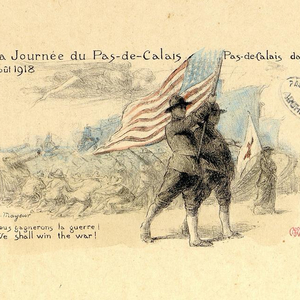 a Journée du Pas-de-Calais
Pas-de-Calais da
oût 1918
Mayeur
ous gagnerons la guerre!
We shall win the war!